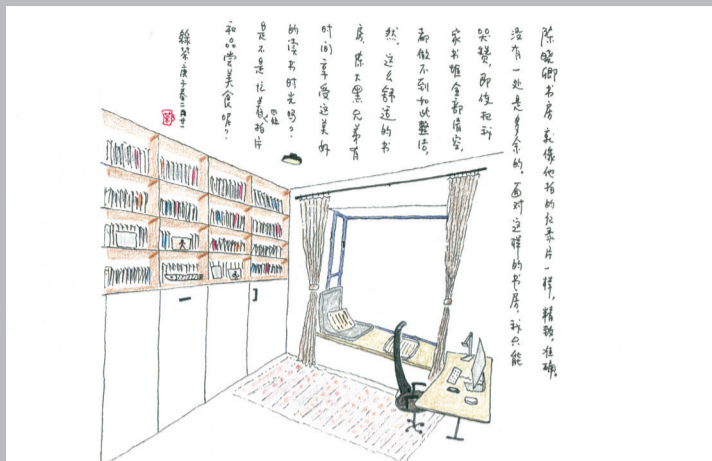 陈晓卿书房就像他拍的纪录片一样，精致，准确，
没有一处是多余的。面对这样的书房，我只能
哭赞，即使把我
家书堆全部清空，
都做不到如此整洁，
然，这么舒适的书
房，陈大黑兄弟有
时间享受这美好
的读书时光吗？
是不是忙着拍片
和品尝美食呢？
绿茶庚子春二月廿